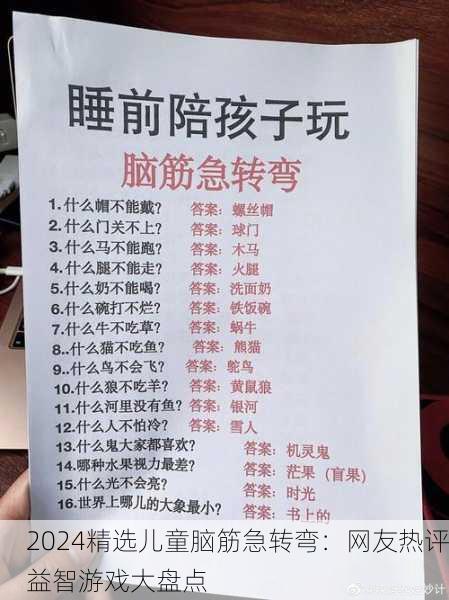 睡前陪孩子玩
脑筋急转弯
1.什么帽不能戴? 答案: 螺丝帽
2.什么门关不上? 答案: 球门
3.什么马不能跑? 答案: 木马
4.什么腿不能走? 答案: 火腿
5.什么奶不能喝? 答案: 洗面奶
6.什么碗打不烂? 答案: 铁饭碗
7.什么牛不吃草? 答案: 蜗牛
8..什么猫不吃鱼? 答案: 熊猫
9..什么鸟不会飞? 答案: 鸵鸟
10.什么狼不吃羊? 答案: 黄鼠狼
11.什么河里没有鱼? 答案: 银河
12.什么人不怕冷? 答案: 雪人
13.什么鬼大家都喜欢? 答案: 机灵鬼
14.哪种水果视力最差? 答案: 芒果（盲果）
15.什么光不会亮? 答案: 时光
16.世界上哪儿的大象最小? 答案: 书上的
2024精选儿童脑筋急转弯：网友热评
益智游戏大盘点